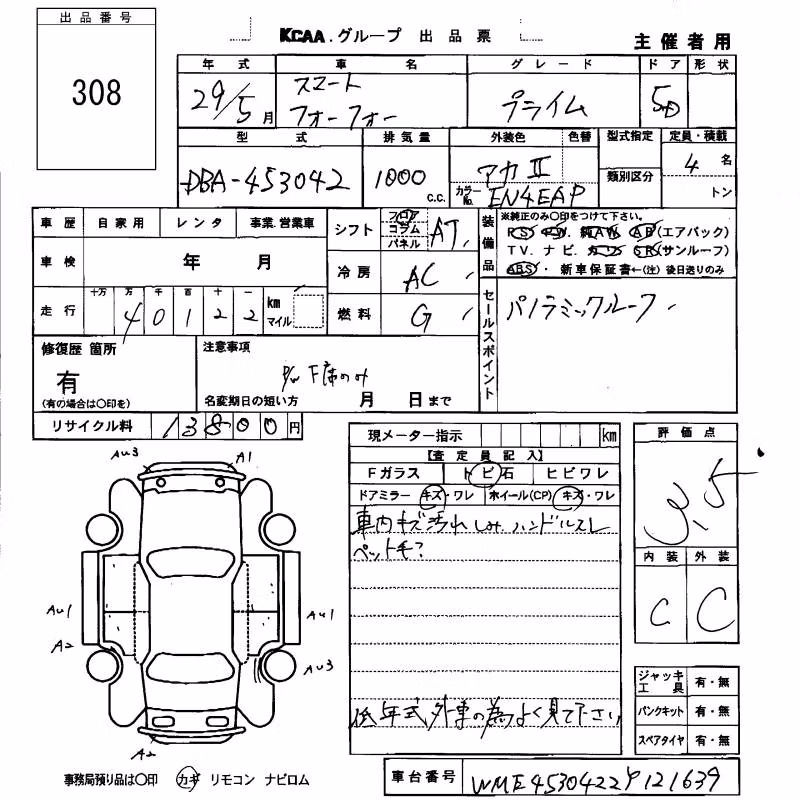 出品番号
308
KCAA.グループ 出品票
主催者用
年式 車名 グレード ドア 形状
29/5月 スマート フォーフォー プライム 5D
型式 排気量 外装色 色替 型式指定 定員・積載
DBA-453042 1000 c.c. アカⅡ 4名
カラーNo. EN4EAP 類別区分 トン
車歴 自家用 レンタ 事業.営業車
シフト フロア コラム パネル AT
装備品 ※純正のみ○印をつけて下さい。
PS PW 純AW AB(エアバッグ)
TV. ナビ. カワ SR(サンルーフ)
ABS ・新車保証書←(注)後日送りのみ
車検 年 月
冷房 AC
走行 十万 万 千 百 十 一
4 0 1 2 2 km マイル
燃料 G
セールスポイント パノラミックルーフ
修復歴 箇所
有
(有の場合は○印を)
注意事項
P/W F席のみ
名変期日の短い方 月 日まで
リサイクル料 13800円
現メーター指示 km
評価点
3.5
【査定員記入】
Fガラス トビ石 ヒビワレ
ドアミラー キズ・ワレ ホイール(CP) キズ・ワレ
車内キズ汚れ しみ ハンドルスレ
ペット毛?
内装 外装
C C
AU3 A1
AU1 AU1
A2 AU3
A2
ジャッキ工具 有・無
パンクキット 有・無
スペアタイヤ 有・無
低年式 外車の為 よく見て下さい
事務局預り品は○印 カギ リモコン ナビロム
車台番号 WME4530422Y121639